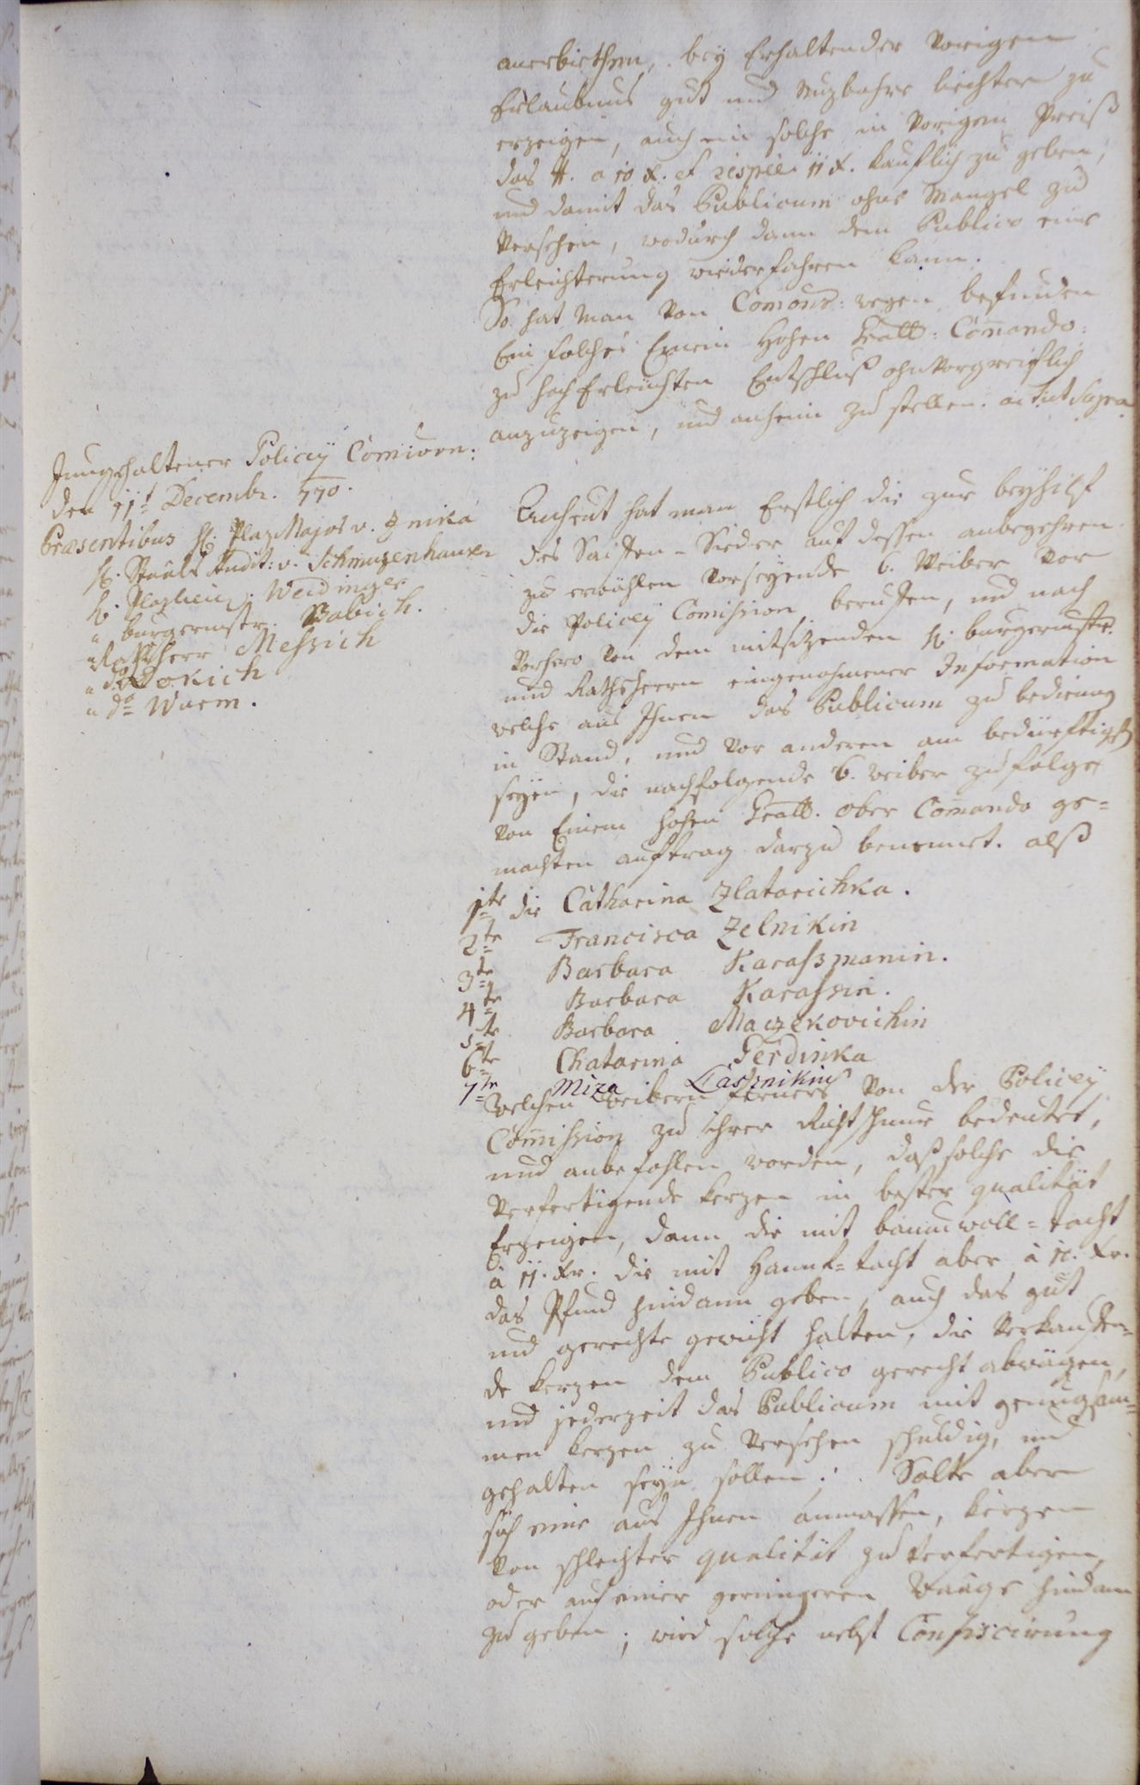 anerbiethen, bey Erhaltender vorigen
Erlaubnus gut und Nuzbahre liechter zu
erzeigen, auch ein solche in vorigem Preiß
das ℔. a 10 x. et respée 11 x. käuflich zu geben,
und damit das Publicum ohne Mangel zu
versehen, wodurch dann dem Publico eine
Erleichterung wiederfahren kann.
So hat man von Comons: wegen befunden
Ein solches Einem Hohen Gralt: Comando:
zu hoch Erleichten Entschluß ohnvorgreiflich
anzuzeigen, und anheim zu stellen. act. ut Supra
Jungehaltener Policeÿ Comionn:
den 11t Decembr. 770.
Præsentibus H: PlazMajor v. Znika
H. Staabs Audit: v. Schmuzenhauser
H. Plazlieut: Weidinger
" burgermstr. Babich.
" Rathsherr Messich
" do Dokich
" do Warm.
Anheut hat man Erstlich die zur beyhilf
des Saiffen-Sieder auf dessen anbegehren
zu erwöhlen vorseyende 6. Weiber vor
die Policeÿ Comission beruffen, und nach
vorhero von dem mitsitzenden H: burgermstr.
und Rathsherrn eingenohmener Information
welche aus Ihnen das Publicum zu bedienen
in Stand, und vor anderen am bedürftigst
seyen, die nachfolgende 6. weiber zufolge
von Einem Hohen Gralt. Ober Comando ge=
machten auftrag darzu benennet. alß
1te die Catharina Zlatarichka.
2te Francisca Zelnikin
3te Barbara Karassmanin.
4te Barbara Karassin.
5te Barbara Maczekovichin
6te Chatarina Gerdinka
7te Miza Lassnikin
welchen weibern ferners von der Policeÿ
Comission zu ihrer Richtschnur bedeutet,
und anbefohlen worden, daß solche die
verfertigende kerzen in bester qualität
Erzeigen, dann die mit baumwoll=tacht
à 11. Xr. die mit Hannf=tacht aber à 10. Xr.
das Pfund hindann geben, auch das gut
und gerechte gewicht halten, die verkauffen=
de kerzen dem Publico gerecht abwägen,
und jederzeit das Publicum mit genugsam=
men kerzen zu versehen schuldig, und
gehalten seyn sollen. Solte aber
sich eine aus Ihnen anmassen, kerzen
von schlechter qualität zu verfertigen,
oder auf einer geringeren Waage hindann
zu geben; wird solche nebst Confiscirung